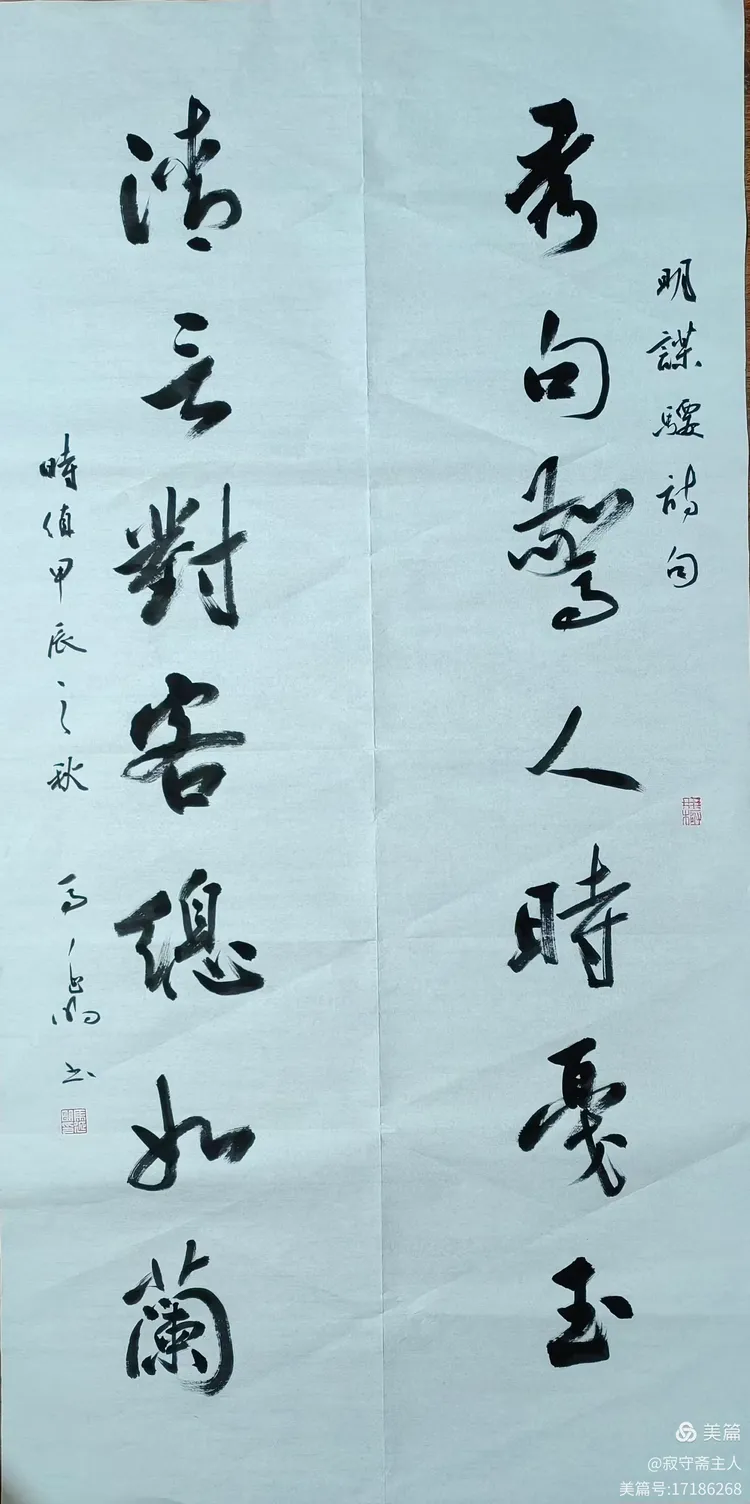 秀句驚人時戛玉
明謀㜻詩句
清言對客總如蘭
時值甲辰之秋
書
美篇
@寂守斋主人
美篇号:17186268